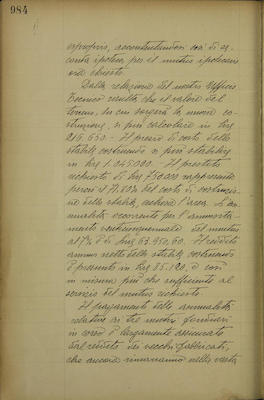 984
esproprio, accontentandosi così di se-
conda ipoteca per il mutuo ipotecario
ora chiesto.
Dalla relazione del nostro Ufficio
Tecnico risulta che il valore del
terreno, su cui sorgerà la nuova co-
struzione, si può calcolare in Lire
215.550 - Il prezzo di costo dello
stabile costruendo si può stabilire
in Lire 1.045.000 - Il prestito
richiesto di Lire 750000 rappresenta
perciò il 71.80% del costo di costruzio-
ne dello stabile, esclusa l'area. L'an-
nualità occorrente per l'ammorta-
mento venticinquennale del mutuo
al 7% è di Lire 63.950,60. Il reddito
annuo netto dello stabile costruendo
è previsto in Lire 85.190, e così
in misura più che sufficiente al
servizio del mutuo richiesto.
Il pagamento delle annualità
relative ai tre mutui fondiari
in corso è largamente assicurato
dal reddito dei vecchi fabbricati,
che ancora rimarranno nella vasta